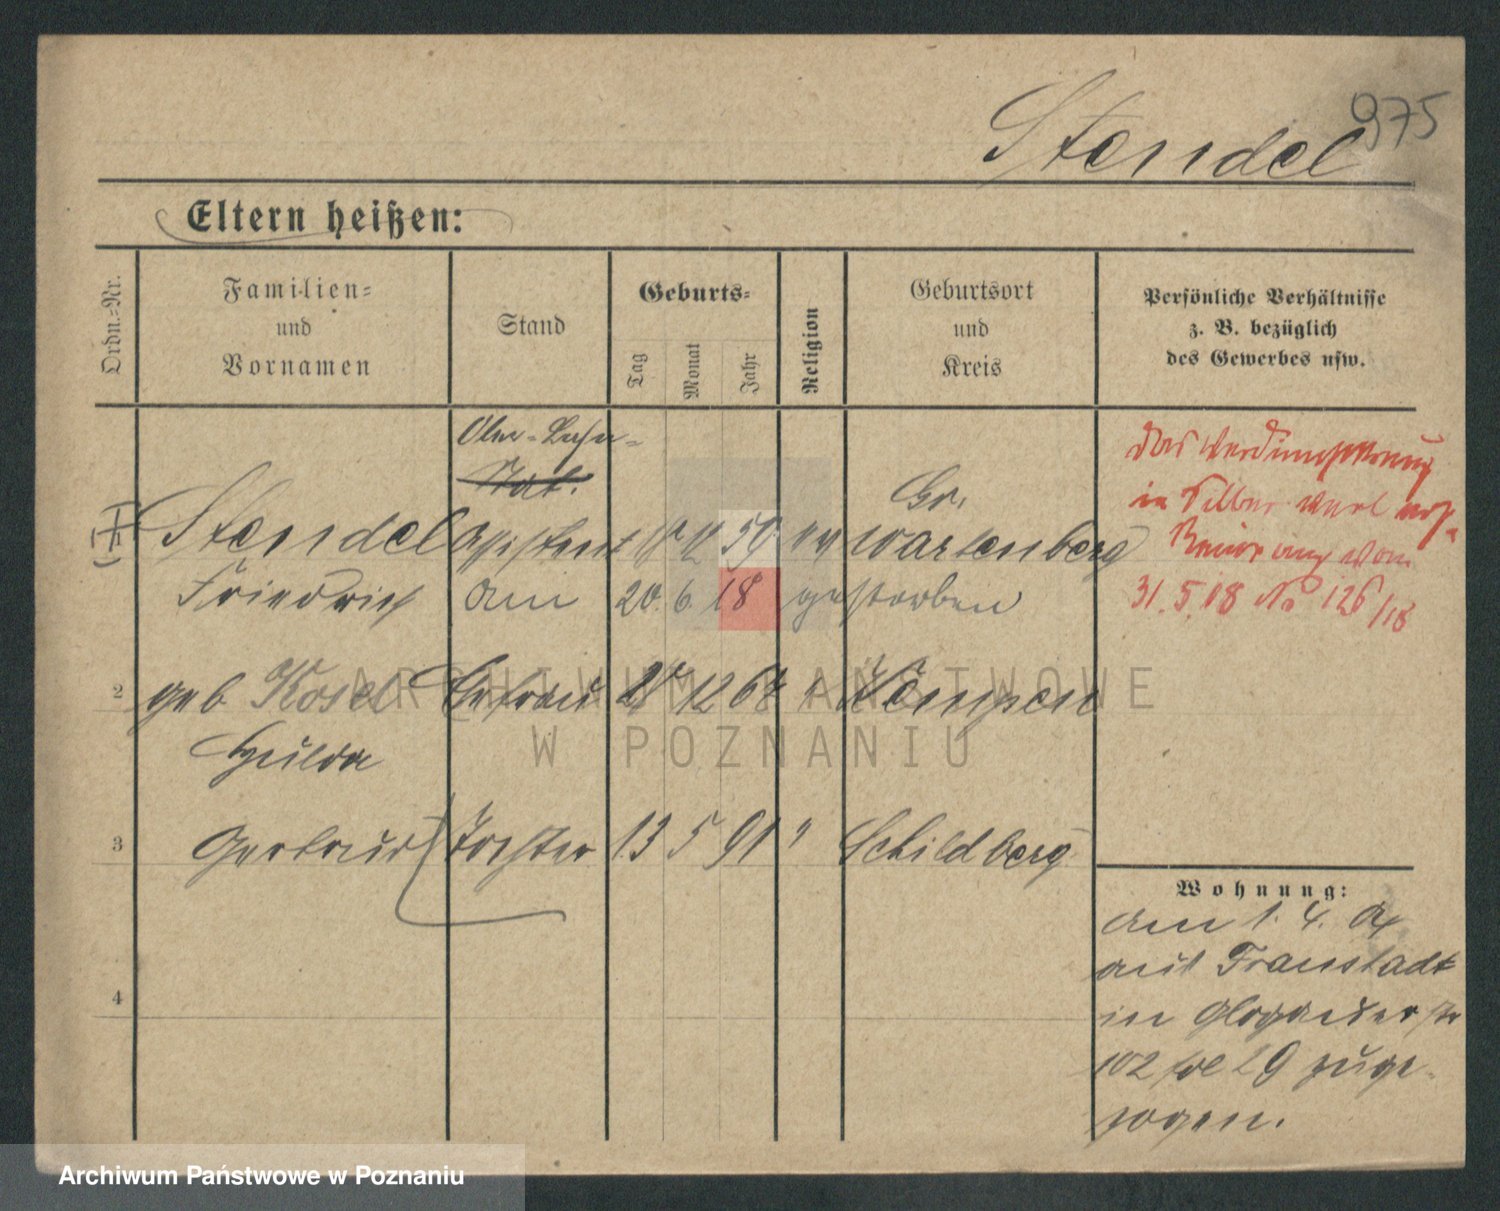 975
Stendel
Eltern heißen:
Ordn.-Nr.
Familien-
und
Vornamen
Stand
Geburts-
Tag
Monat
Jahr
Religion
Geburtsort
und
Kreis
Persönliche Verhältnisse
z. B. bezüglich
des Gewerbes usw.
Ober-Bahn-
Stendel Assistent 59 ev Gr. Wartenberg
Friedrich am 20. 6. 18 gestorben
Das Verdienstkreuz
in Silber
vom
31. 5. 18 No 126/18
2 geb Kosel Ehefrau 12 67 " Kempen
Hulda
3 Gertrud Tochter 13 5 91 " Schildberg
4
Wohnung:
am 1. 4. 04
aus Fraustadt
in Glogauerstr
102 zuge-
zogen.
ARCHIWUM PAŃSTWOWE
W POZNANIU
Archiwum Państwowe w Poznaniu